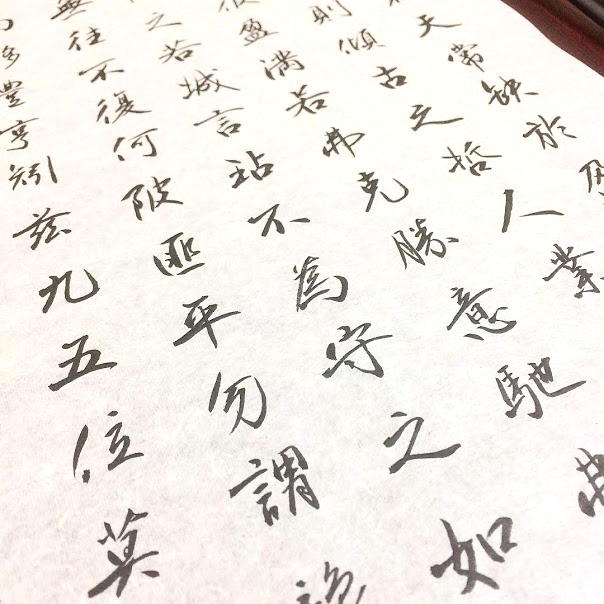 天常缺於
則傾古之哲人業
盈滿若弗克勝意馳
之若城言玷不為守之如
往不復何陂匪平勿謂
多豐亨矧茲九五位莫